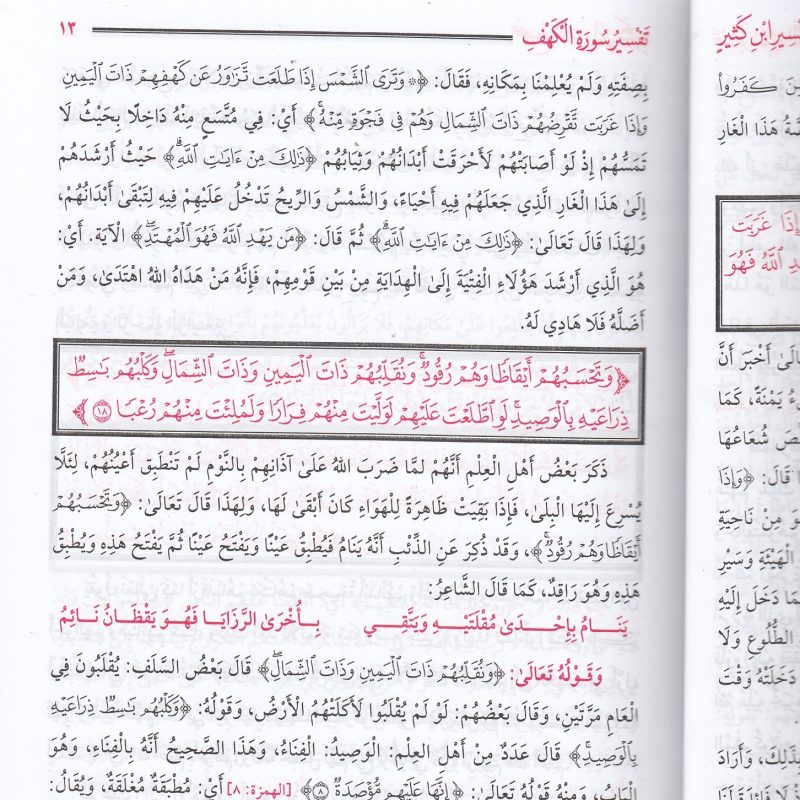 تَفْسِيرُ سُورَةِ الْكَهْفِ ١٣
بِصِفَتِهِ وَلَمْ يُعْلِمْنَا بِمَكَانِهِ، فَقَالَ: ﴿۞ وَتَرَى ٱلشَّمْسَ إِذَا طَلَعَت تَّزَٰوَرُ عَن كَهْفِهِمْ ذَاتَ ٱلْيَمِينِ
وَإِذَا غَرَبَت تَّقْرِضُهُمْ ذَاتَ ٱلشِّمَالِ وَهُمْ فِى فَجْوَةٍ مِّنْهُ﴾ أَيْ: فِي مُتَّسَعٍ مِنْهُ دَاخِلًا بِحَيْثُ لَا
تَمَسُّهُمْ إِذْ لَوْ أَصَابَتْهُمْ لَأَحْرَقَتْ أَبْدَانُهُمْ وَثِيَابُهُمْ ﴿ذَٰلِكَ مِنْ ءَايَٰتِ ٱللَّهِ﴾ حَيْثُ أَرْشَدَهُمْ
إِلَىٰ هَذَا الْغَارِ الَّذِي جَعَلَهُمْ فِيهِ أَحْيَاءً، وَالشَّمْسُ وَالرِّيحُ تَدْخُلُ عَلَيْهِمْ فِيهِ لِتَبْقَىٰ أَبْدَانُهُمْ،
وَلِهَذَا قَالَ تَعَالَىٰ: ﴿ذَٰلِكَ مِنْ ءَايَٰتِ ٱللَّهِ﴾ ثُمَّ قَالَ: ﴿مَن يَهْدِ ٱللَّهُ فَهُوَ ٱلْمُهْتَدِ﴾ الْآيَةَ. أَيْ:
هُوَ الَّذِي أَرْشَدَ هَؤُلَاءِ الْفِتْيَةَ إِلَىٰ الْهِدَايَةِ مِنْ بَيْنِ قَوْمِهِمْ، فَإِنَّهُ مَنْ هَدَاهُ اللهُ اهْتَدَىٰ، وَمَنْ
أَضَلَّهُ فَلَا هَادِي لَهُ.
﴿وَتَحْسَبُهُمْ أَيْقَاظًا وَهُمْ رُقُودٌ وَنُقَلِّبُهُمْ ذَاتَ ٱلْيَمِينِ وَذَاتَ ٱلشِّمَالِ وَكَلْبُهُم بَٰسِطٌ
ذِرَاعَيْهِ بِٱلْوَصِيدِ لَوِ ٱطَّلَعْتَ عَلَيْهِمْ لَوَلَّيْتَ مِنْهُمْ فِرَارًا وَلَمُلِئْتَ مِنْهُمْ رُعْبًا ١٨﴾
ذَكَرَ بَعْضُ أَهْلِ الْعِلْمِ أَنَّهُمْ لَمَّا ضَرَبَ اللهُ عَلَىٰ آذَانِهِمْ بِالنَّوْمِ لَمْ تَنْطَبِقْ أَعْيُنُهُمْ، لِئَلَّا
يُسْرِعَ إِلَيْهَا الْبِلَىٰ، فَإِذَا بَقِيَتْ ظَاهِرَةً لِلْهَوَاءِ كَانَ أَبْقَىٰ لَهَا، وَلِهَذَا قَالَ تَعَالَىٰ: ﴿وَتَحْسَبُهُمْ
أَيْقَاظًا وَهُمْ رُقُودٌ﴾، وَقَدْ ذُكِرَ عَنِ الذِّئْبِ أَنَّهُ يَنَامُ فَيُطْبِقُ عَيْنًا وَيَفْتَحُ عَيْنًا ثُمَّ يَفْتَحُ هَذِهِ وَيُطْبِقُ
هَذِهِ وَهُوَ رَاقِدٌ، كَمَا قَالَ الشَّاعِرُ:
يَنَامُ بِإِحْدَىٰ مُقْلَتَيْهِ وَيَتَّقِي بِأُخْرَىٰ الرَّزَايَا فَهُوَ يَقْظَانُ نَائِمُ
وَقَوْلُهُ تَعَالَىٰ: ﴿وَنُقَلِّبُهُمْ ذَاتَ ٱلْيَمِينِ وَذَاتَ ٱلشِّمَالِ﴾ قَالَ بَعْضُ السَّلَفِ: يُقْلَبُونَ فِي
الْعَامِ مَرَّتَيْنِ، وَقَالَ بَعْضُهُمْ: لَوْ لَمْ يُقْلَبُوا لَأَكَلَتْهُمُ الْأَرْضُ، وَقَوْلُهُ: ﴿وَكَلْبُهُم بَٰسِطٌ ذِرَاعَيْهِ
بِٱلْوَصِيدِ﴾ قَالَ عَدَدٌ مِنْ أَهْلِ الْعِلْمِ: الْوَصِيدُ: الْفِنَاءُ، وَهَذَا الصَّحِيحُ أَنَّهُ بِالْفِنَاءِ، وَهُوَ
الْبَابُ، وَمِنْهُ قَوْلُهُ تَعَالَىٰ: ﴿إِنَّهَا عَلَيْهِم مُّؤْصَدَةٌ ٨﴾ [الهمزة: ٨] أَيْ: مُطْبَقَةٌ مُغْلَقَةٌ، وَيُقَالُ:
ابْنِ كَثِيرٍ
كَفَرُوا
هَذَا الْغَارِ
إِذَا غَرَبَت
ٱللَّهُ فَهُوَ
أَخْبَرَ أَنَّ
يَمْنَةً، كَمَا
شُعَاعُهَا
قَالَ: ﴿وَإِذَا
مِنْ نَاحِيَةِ
الْهَيْئَةِ وَسَيْرِ
دَخَلَ إِلَيْهِ
الطُّلُوعِ وَلَا
دَخَلَتْهُ وَقْتَ
وَأَرَادَ